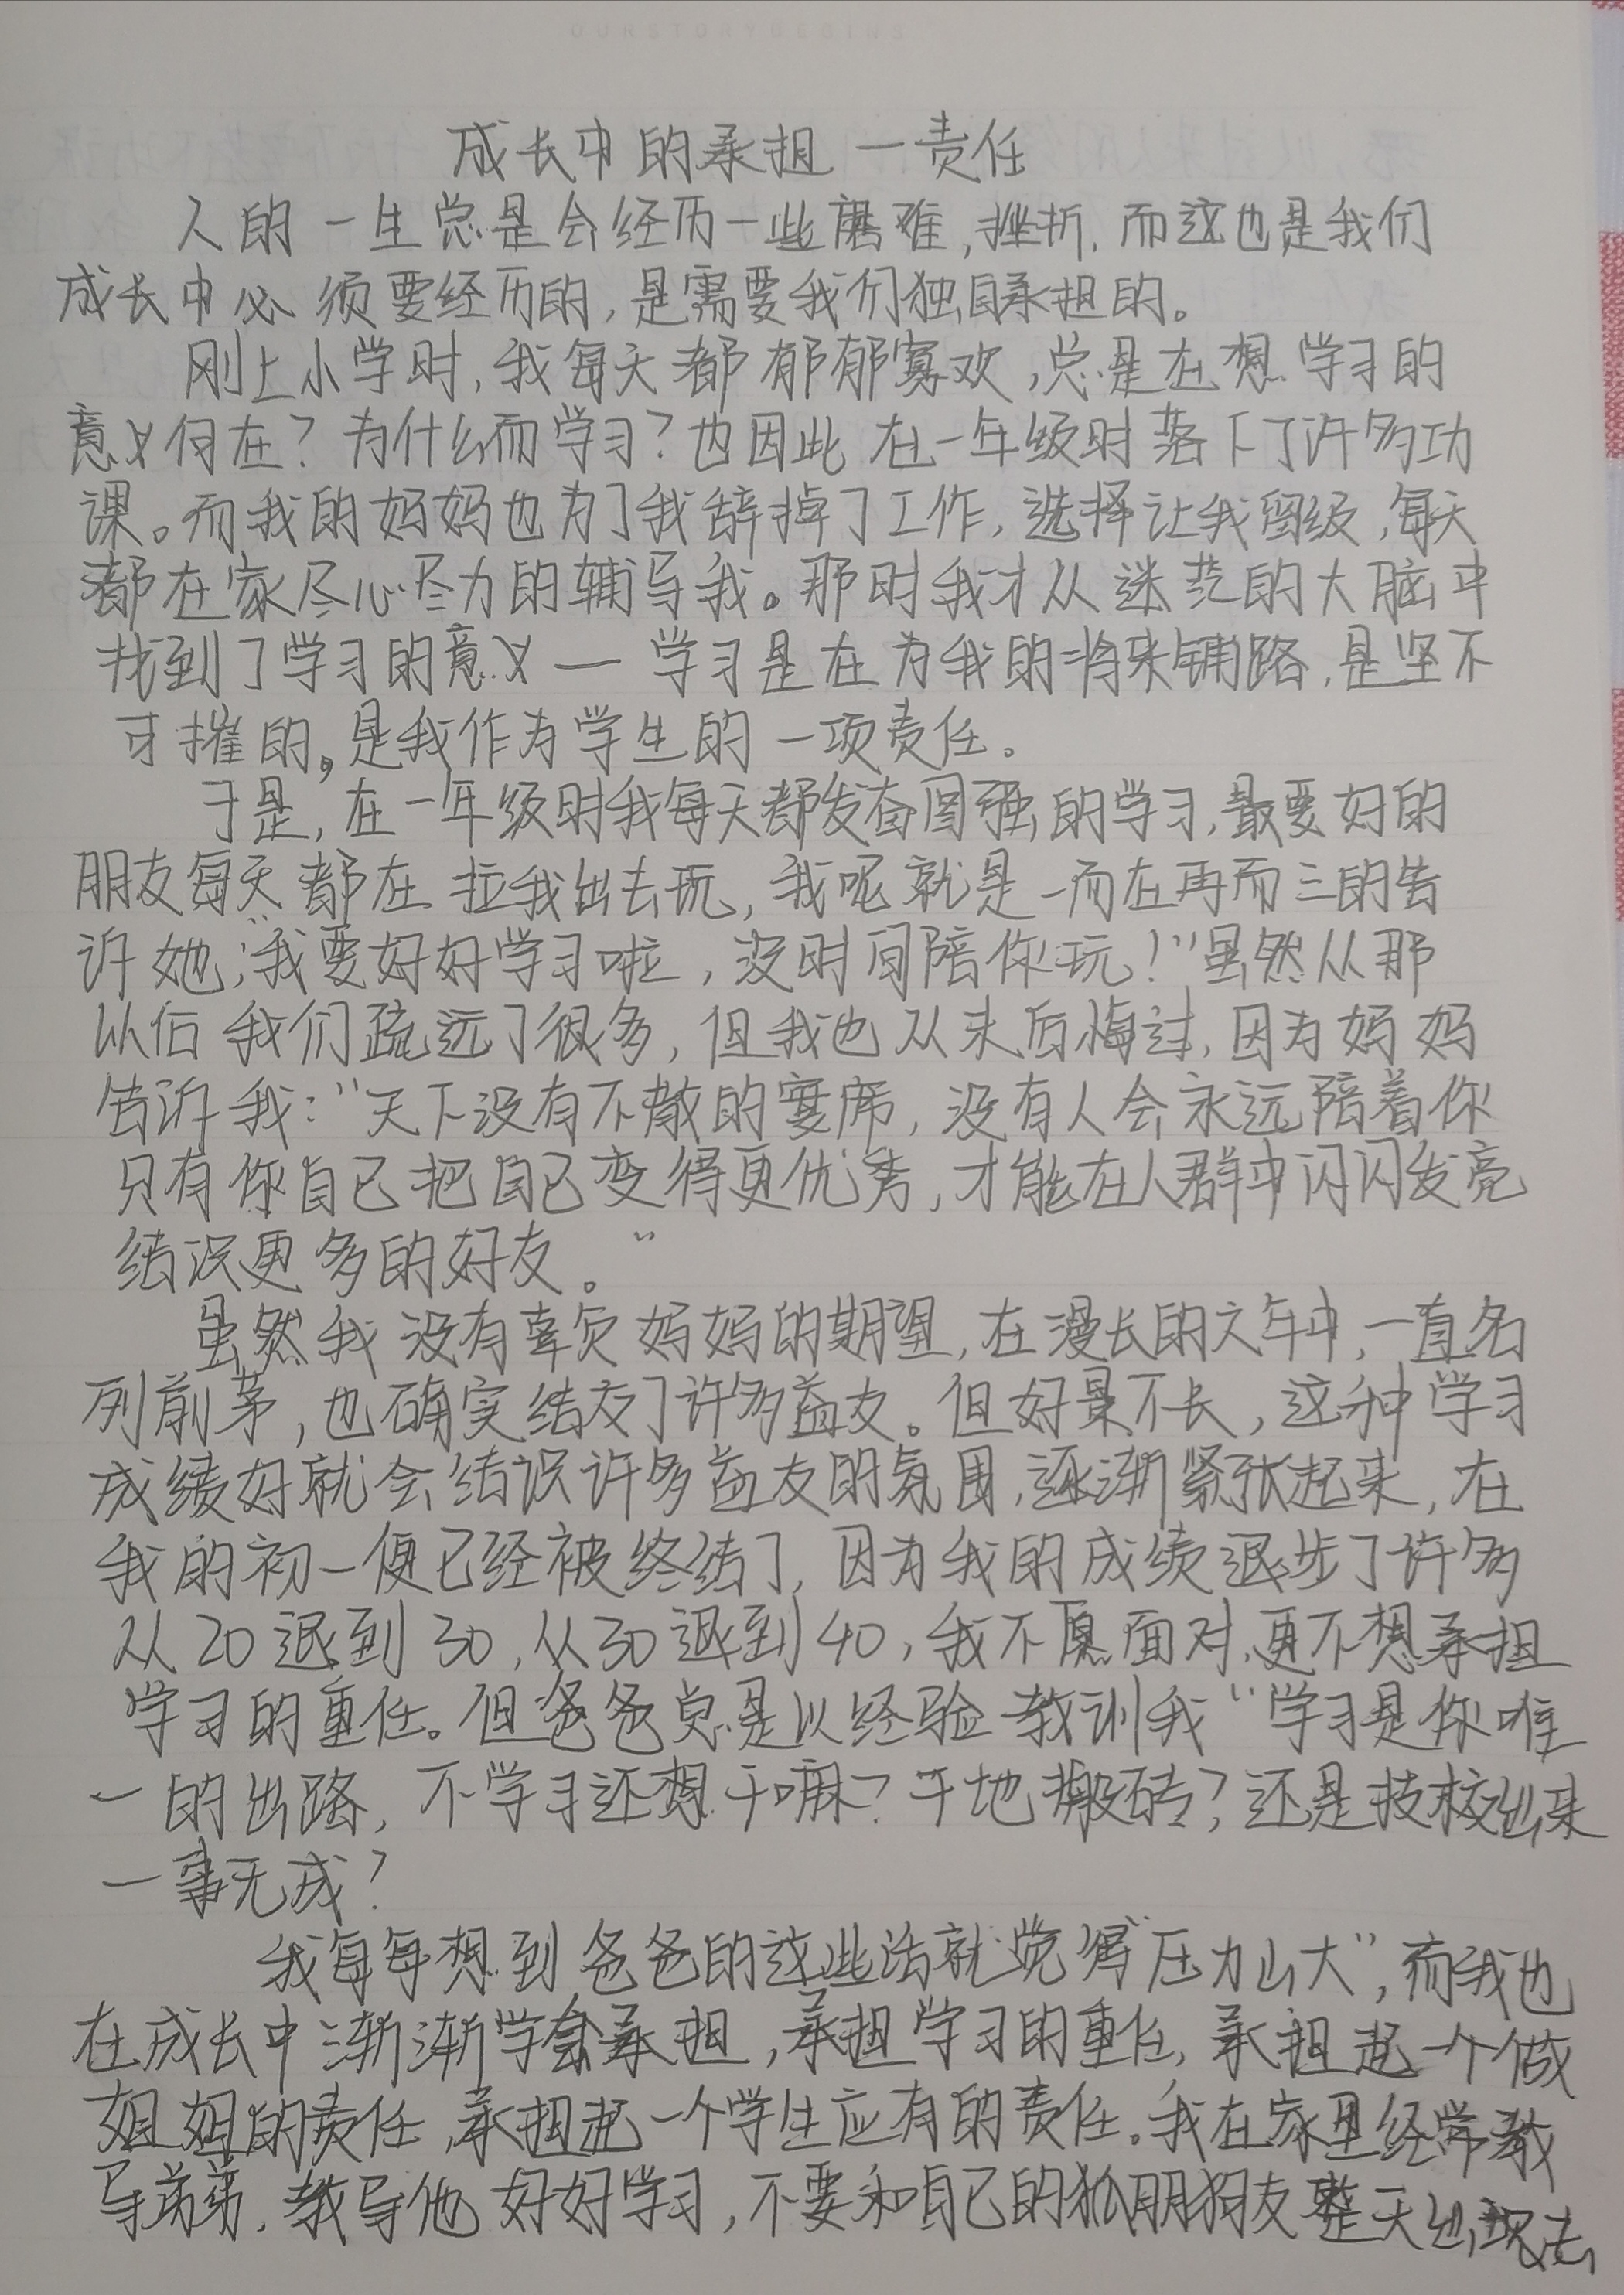 OURSTORYBEGINS
成长中的承担一责任
人的一生总是会经历一些磨难,挫折,而这也是我们
成长中必须要经历的,是需要我们独自承担的。
刚上小学时,我每天都郁郁寡欢,总是在想学习的
意义何在?为什么而学习?也因此在一年级时落下了许多功
课。而我的妈妈也为了我辞掉了工作,选择让我留级,每天
都在家尽心尽力的辅导我。那时我才从迷茫的大脑中
找到了学习的意义—学习是在为我的将来铺路,是坚不
可摧的。是我作为学生的一项责任。
于是,在一年级时我每天都发奋图强的学习,最要好的
朋友每天都在拉我出去玩,我呢就是一而在再而三的告
诉她:“我要好好学习啦,没时间陪你玩!”虽然从那
以后我们疏远了很多,但我也从未后悔过,因为妈妈
告诉我:“天下没有不散的宴席,没有人会永远陪着你
只有你自己把自己变得更优秀,才能在人群中闪闪发亮
结识更多的好友。”
虽然我没有辜负妈妈的期望,在漫长的六年中,一直名
列前茅,也确实结交了许多益友。但好景不长,这种学习
成绩好就会结识许多益友的氛围,逐渐紧张起来,在
我的初一便已经被终结了,因为我的成绩退步了许多
从20退到30,从30退到40,我不愿面对,更不想承担
学习的重任。但爸爸总是以经验教训我“学习是你唯
一的出路,不学习还想干嘛?干地搬砖?还是技校出来
一事无成?
我每每想到爸爸的这些话就觉得“压力山大”,而我也
在成长中渐渐学会承担,承担学习的重任,承担起一个做
姐姐的责任,承担起一个学生应有的责任。我在家里经常教
导弟弟,教导他好好学习,不要和自己的狐朋狗友整天出去